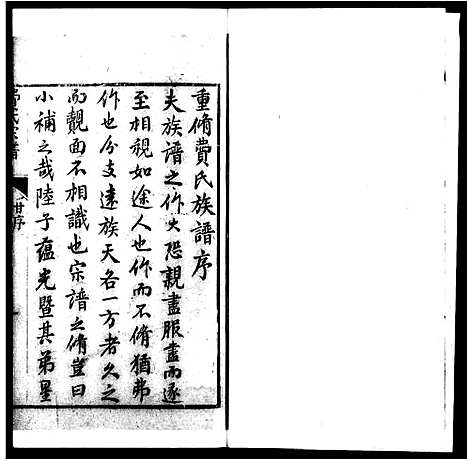 重脩費氏族譜序
夫族譜之作大恐親盡服盡而遂
至相視如途人也作而不脩猶弗
作也分支遠族天各一方者久之
而覿面不相識也宗譜之脩豈曰
小補之哉陸子蘊光暨其弟星
氏宗譜
序